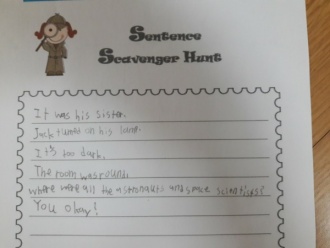 Sentence
Scavenger Hunt
It was his sister.
Jack turned on his lamp.
It's too dark.
The room was round.
where were all the astronauts and space scientists?
You okay?